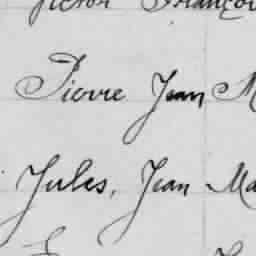 Victor Françoi
Pierre Jean M
Jules, Jean Ma